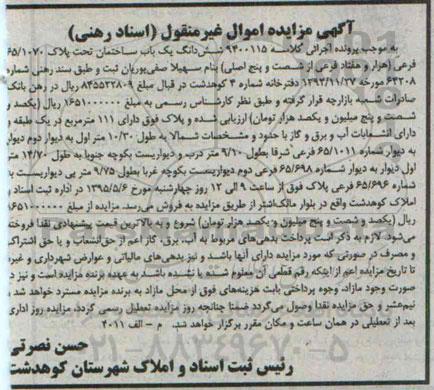 آگهی مزایده اموال غیرمنقول (اسناد رهنی)
به موجب پرونده اجرائی کلاسه ۹۴۰۰۱۱۵ شش‌دانگ یک باب ساختمان تحت پلاک ۶۵/۱۰۷۰
فرعی (هزار و هفتاد فرعی از شصت و پنج اصلی) بنام سهیلا صفی‌پوریان ثبت و طبق سند رهنی شماره
۶۳۲۰۸ مورخه ۱۳۹۳/۱۱/۲۷ دفترخانه شماره ۳ کوهدشت در قبال مبلغ ۸۴۵۵۳۲۸۰۹ ریال در رهن بانک
صادرات شعبه بازارچه قرار گرفته و طبق نظر کارشناس رسمی به مبلغ ۱۶۵۱۰۰۰۰۰۰ ریال (یکصد و
شصت و پنج میلیون و یکصد هزار تومان) ارزیابی شده و پلاک فوق دارای ۱۱۱ مترمربع در یک طبقه و
دارای انشعابات آب و برق و گاز با حدود و مشخصات شمالا به طول ۱۰/۳۰ متر اول به دیوار دوم دیوار
به دیوار شماره ۶۵/۱۰۱۱ فرعی شرقا بطول ۹/۱۰ متر درب و دیواریست بکوچه جنوبا به طول ۱۴/۷۰ متر
اول دیوار به دیوار شماره ۶۵/۶۹۸ فرعی دوم دیواریست بکوچه غربا بطول ۹/۷۵ متر پی دیواریست به
شماره ۶۵/۶۹۶ فرعی پلاک فوق از ساعت ۹ الی ۱۲ روز چهارشنبه مورخ ۱۳۹۵/۵/۶ در اداره ثبت اسناد و
املاک کوهدشت واقع در بلوار مالک‌اشتر از طریق مزایده به فروش می‌رسد. مزایده از مبلغ ۱۶۵۱۰۰۰۰۰۰
ریال (یکصد و شصت و پنج میلیون و یکصد هزار تومان) شروع و به بالاترین قیمت پیشنهادی نقدا فروخته
می‌شود. لازم به ذکر است پرداخت بدهی‌های مربوط به آب، برق، گاز اعم از حق‌انشعاب و یا حق اشتراک
و مصرف در صورتی که مورد مزایده دارای آنها باشد و نیز بدهی‌های مالیاتی و عوارض شهرداری و غیره
تا تاریخ مزایده اعم از اینکه رقم قطعی آن معلوم شده یا نشده باشد به عهده برنده مزایده است و نیز در
صورت وجود مازاد، وجوه پرداختی بابت هزینه‌های فوق از محل مازاد به برنده مزایده مسترد خواهد شد و
نیم‌عشر و حق مزایده نقدا وصول می‌گردد ضمنا چنانچه روز مزایده تعطیل رسمی گردد، مزایده روز اداری
بعد از تعطیلی در همان ساعت و مکان مقرر برگزار خواهد شد. م - الف ۴۰۱۱
حسن نصرتی
رئیس ثبت اسناد و املاک شهرستان کوهدشت
۰۲۱-۸۸۳۴۹۶۷۰-۵